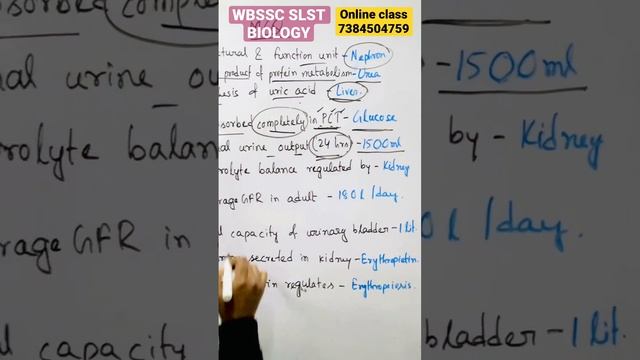 WBSSC SLST
BIOLOGY
Online class
7384504759
tural & function unit - Nephron
product of protein metabolism - Urea
esis of uric acid - Liver
sorbed completely in PCT - Glucose
al urine output (24 hrs) - 1500ml
rolyte balance regulated by - Kidney
rage GFR in adult - 180 l /day.
capacity of urinary bladder - 1 lit.
secreted in kidney - Erythropietin
in regulates - Erythropoiesis.
nal urine
rolyte balanc
rage GFR in
capacity
- 1500ml
by - Kidney
0 l /day.
bladder - 1 lit.